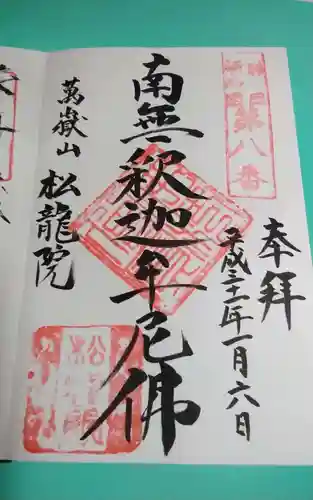 奉拝
平成三十一年一月六日
第八番
南無釈迦牟尼佛
萬嶽山
松龍院